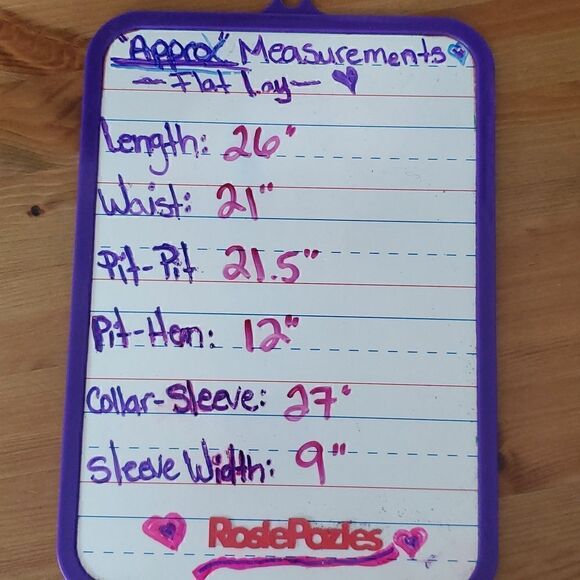 "Approx" Measurements
- Flat Lay -
Length: 26"
Waist: 21"
Pit-Pit 21.5"
Pit-Hem: 12"
Collar-Sleeve: 27"
Sleeve Width: 9"
RosiePozies